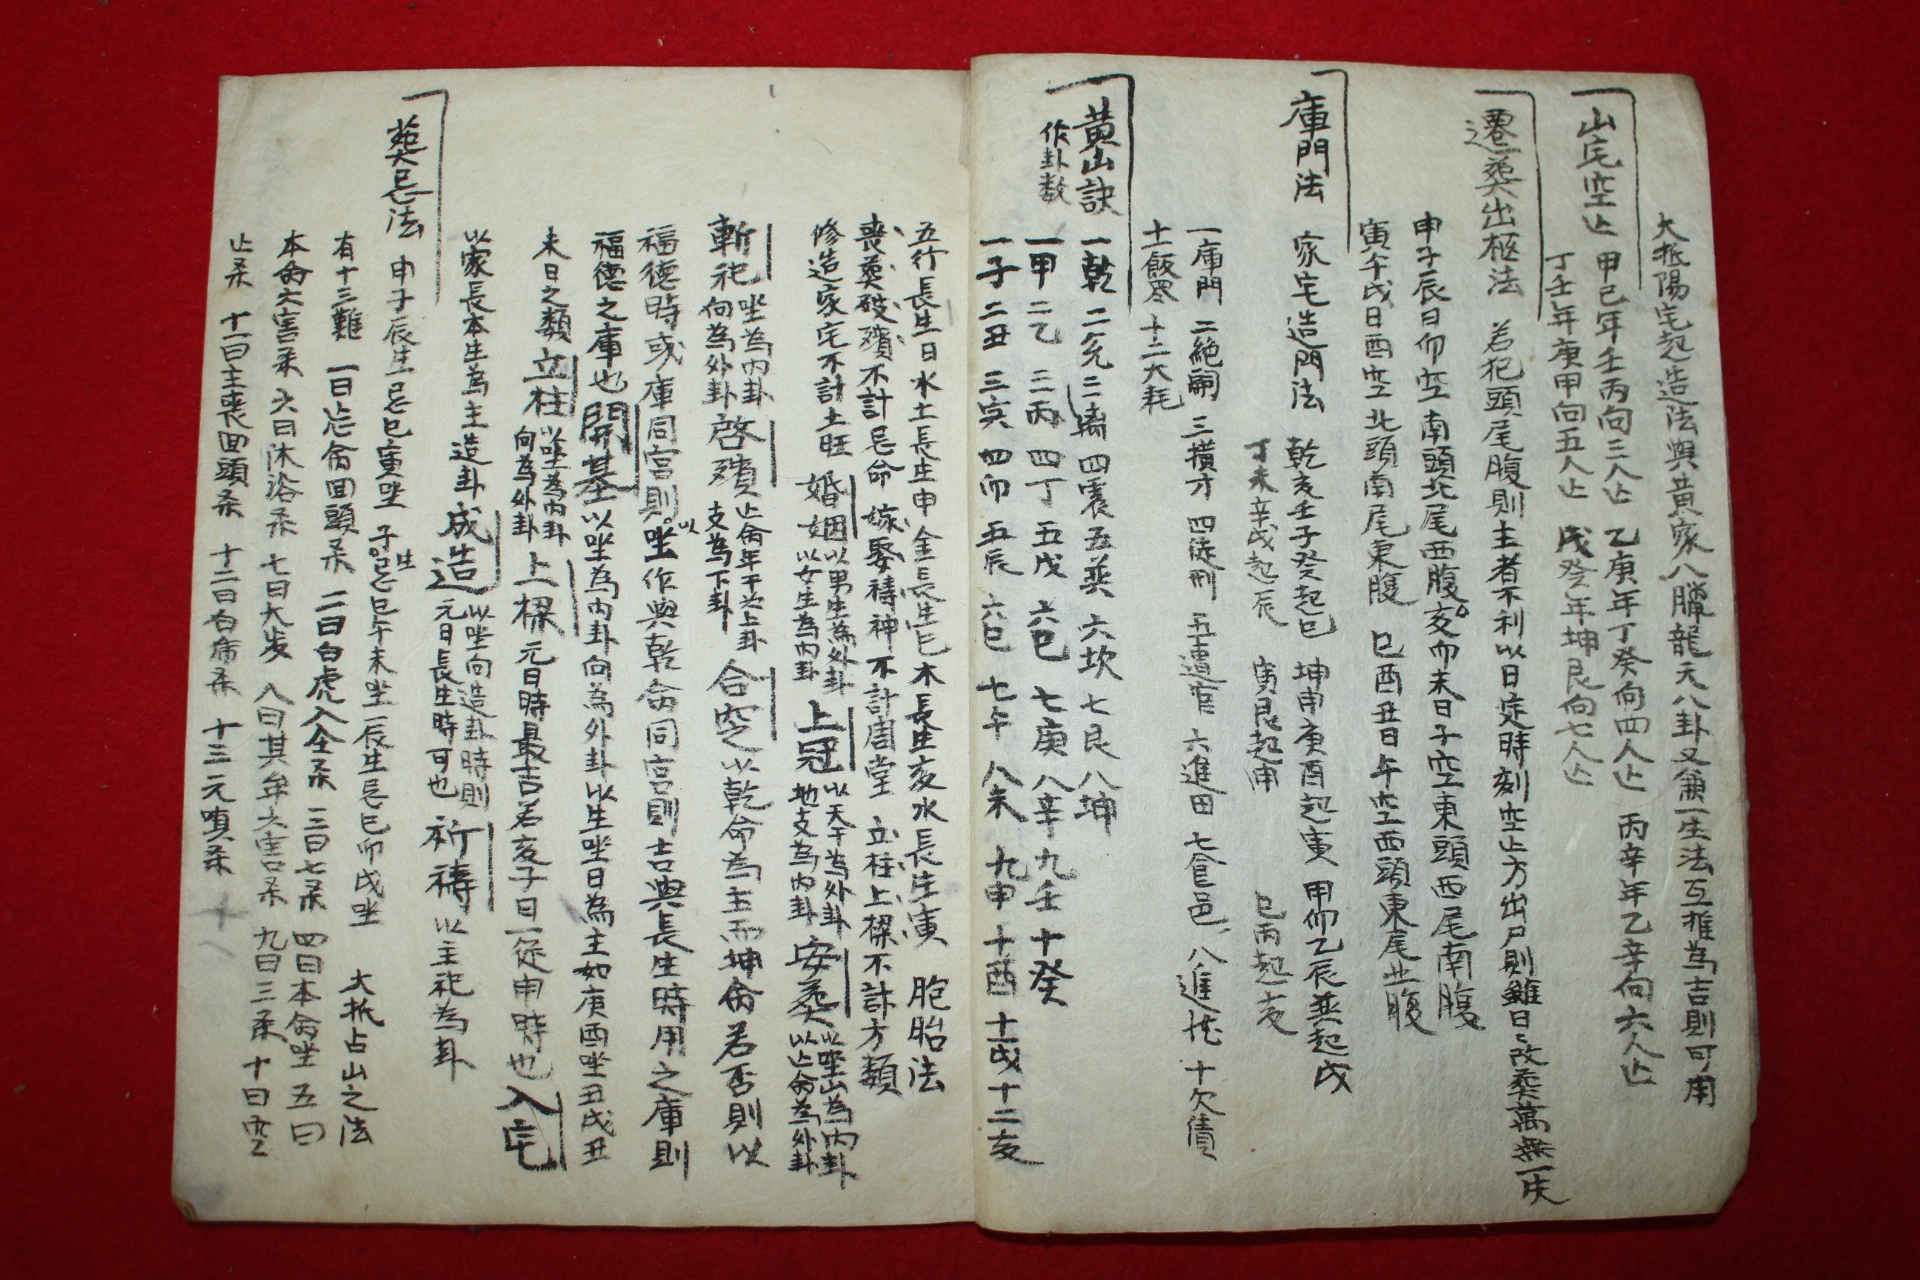 大抵陽宅起造法與黃家八臘龍天八卦又兼一生法互推爲吉則可用
山宅空亡 甲己年壬丙向三人亡 乙庚年丁癸向四人亡 丙辛年乙辛向六人亡
丁壬年庚甲向五人亡 戊癸年坤艮向七人亡
遷葬出柩法 若犯頭尾腹則主者不利以日定時刻空亡方出尸則雖日〻改葬萬無一失
申子辰日卯空南頭北尾西腹 亥卯未日子空東頭西尾南腹
寅午戌日酉空北頭南尾東腹 巳酉丑日午空西頭東尾北腹
庫門法 家宅造門法 乾亥壬子癸起巳 坤申庚酉起寅 甲卯乙辰巽起戌
丁未辛戌起辰 寅艮起申 巳丙起亥
一庫門 二絶嗣 三橫才 四徒刑 五遭官 六進田 七食邑 八進 十欠債
十一飯 十二大耗
黃山訣 一乾 二兌 三离 四震 五巽 六坎 七艮 八坤
作卦數 一甲 二乙 三丙 四丁 五戊 六巳 七庚 八辛 九壬 十癸
一子 二丑 三寅 四卯 五辰 六巳 七午 八未 九申 十酉 十一戌 十二亥
五行長生日水土長生申金長生巳木長生亥水長生寅 胞胎法
喪葬破殯不計忌命 嫁娶禱神不計周堂 立柱上樑不計方類
修造家宅不計土旺 婚姻 以男生爲外卦 以女生爲內卦 上冠 以天干爲外卦 地支爲內卦 安葬 以坐山爲內卦 以亡命爲外卦
斬祀 坐爲內卦 向爲外卦 啓殯 亡命年干爲上卦 支爲下卦 合窆 以乾命爲主而坤命若否則以
福德時或庫同宮則以坐作與乾命同宮則吉與長生時用之庫則
福德之庫也 開基 以坐爲內卦向爲外卦以生坐日爲主如庚酉坐丑戌丑
未日之類 立柱 以坐爲內卦 向爲外卦 上樑 元日時最吉若亥子日一從申時也 入宅
以家長本生爲主造卦 成造 以坐向造卦時則 元日長生時可也 祈禱 以主祀爲卦
葬忌法 申子辰生忌巳寅坐 子生忌巳午未坐 辰生忌巳卯戌坐 大抵占山之法
有十三難 一曰忌命回頭杀 二曰白虎入全杀 三曰七杀 四曰本命坐 五曰
本命六害杀 六曰沐浴杀 七曰大歩 八曰其年六害杀 九曰三杀 十曰空
亡杀 十一曰主喪回頭杀 十二曰白虎杀 十三元嗔杀